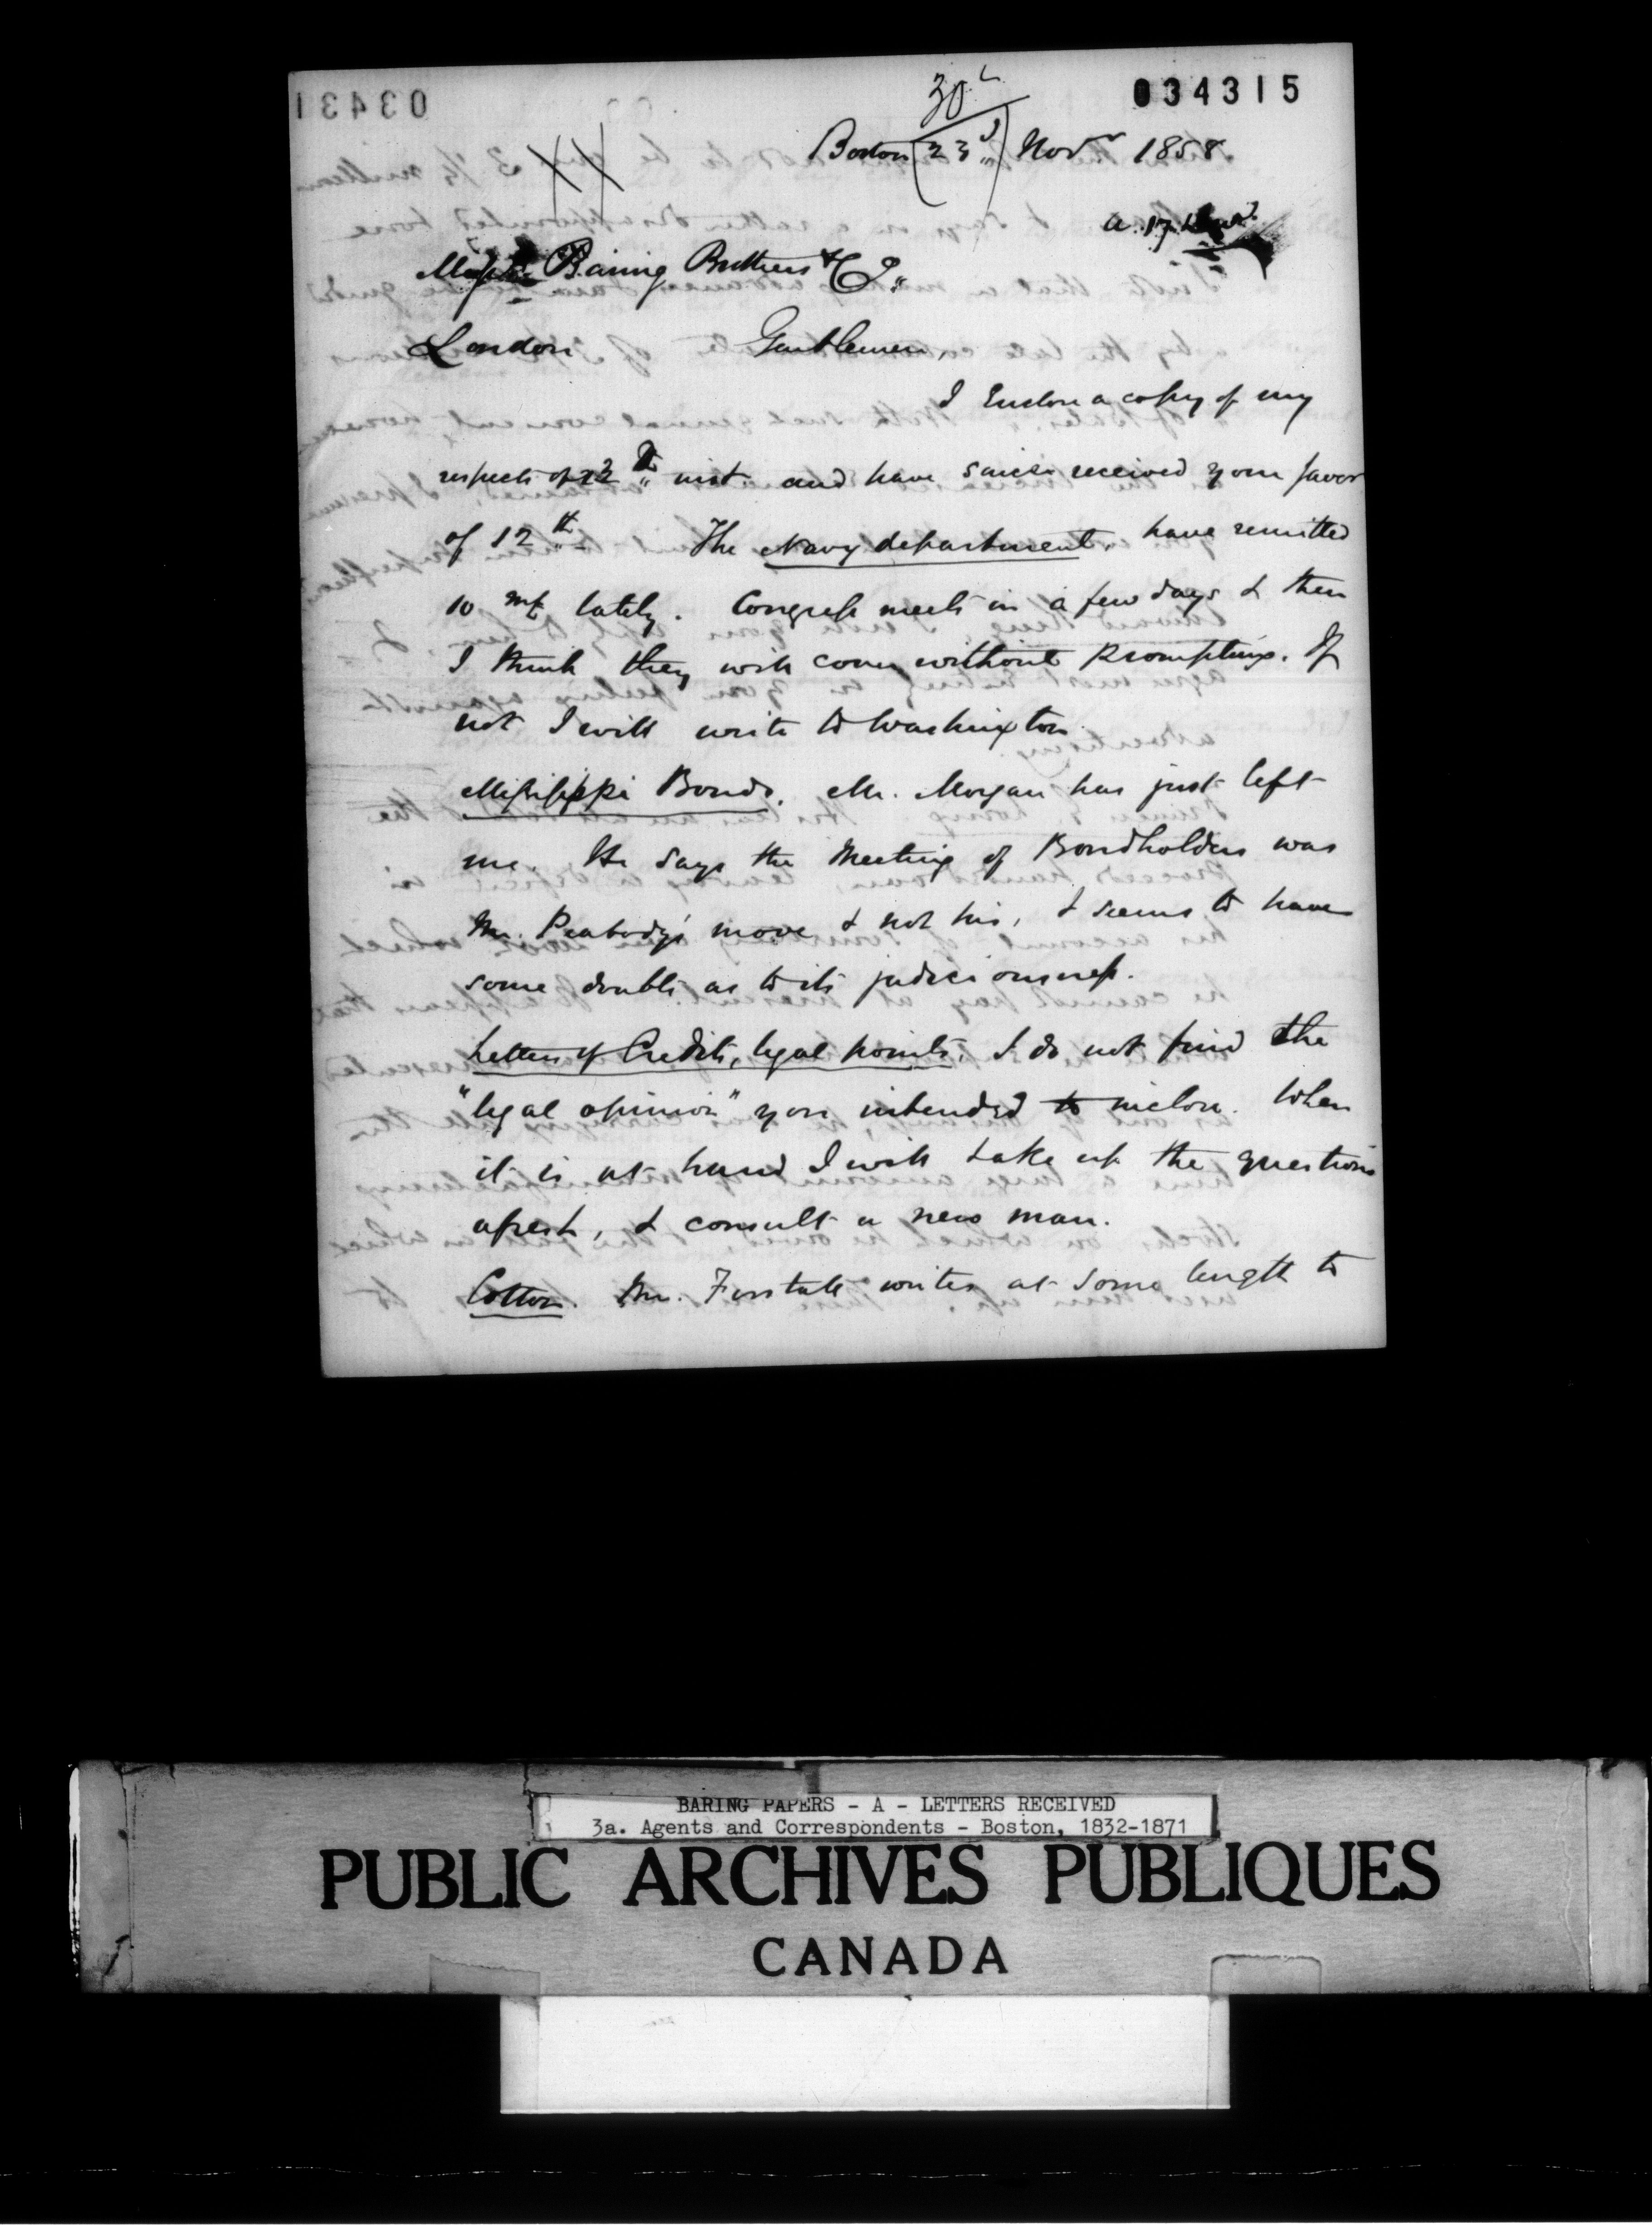 034315
30
Boston (23d) Novr 1858
a. 17
Messrs Baring Brothers & Co.
London Gentlemen,
I Enclose a copy of my
respects of 22d inst. and have since received your favor
of 12th The Navy department, have remitted
10 m£ lately. Congress meets in a few days & then
I think they will come without prompting. If
not I will write to Washington
Mississippi Bonds. Mr. Morgan has just left
me. He says the Meeting of Bondholders was
Mr. Peabody's move & not his, & seems to have
some doubts as to its judiciousness.
Letters of Credit, legal points. I do not find the
"legal opinion" you intended to inclose. When
it is at hand I will take up the questions
afresh, & consult a new man.
Cotton. Mr. Forstall writes at some length to
BARING PAPERS - A - LETTERS RECEIVED
3a. Agents and Correspondents - Boston, 1832-1871
PUBLIC ARCHIVES PUBLIQUES
CANADA